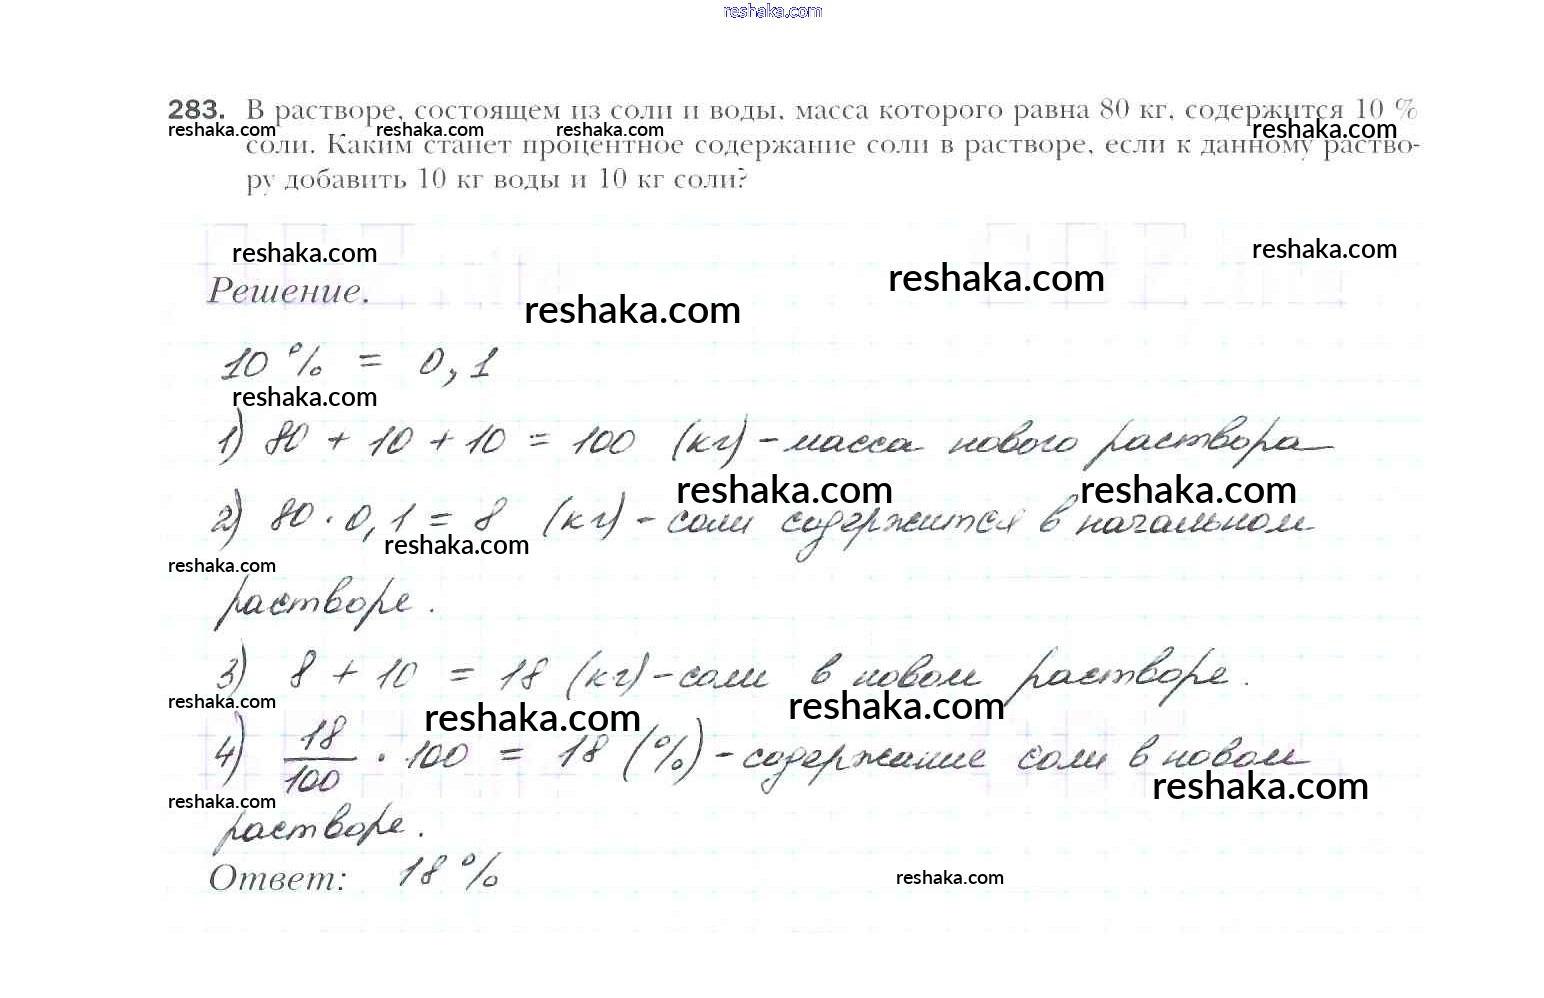 reshaka.com
283. В растворе, состоящем из соли и воды, масса которого равна 80 кг, содержится 10 %
reshaka.com reshaka.com reshaka.com reshaka.com
соли. Каким станет процентное содержание соли в растворе, если к данному раство-
ру добавить 10 кг воды и 10 кг соли?
reshaka.com reshaka.com
reshaka.com
Решение.
reshaka.com
10 % = 0,1
reshaka.com
1) 80 + 10 + 10 = 100 (кг) - масса нового раствора
reshaka.com reshaka.com
2) 80 · 0,1 = 8 (кг) - соли содержится в начальном
reshaka.com
reshaka.com
растворе.
3) 8 + 10 = 18 (кг) - соли в новом растворе.
reshaka.com reshaka.com reshaka.com
4) 18/100 · 100 = 18 (%) - содержание соли в новом
reshaka.com
reshaka.com
растворе.
Ответ: 18 %
reshaka.com